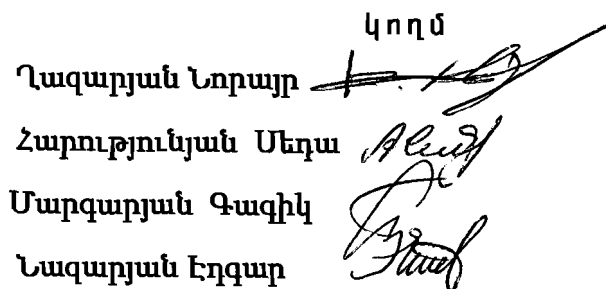 կողմ
Ղազարյան Նորայր
Հարությունյան Սեդա
Մարգարյան Գագիկ
Նազարյան Էդգար